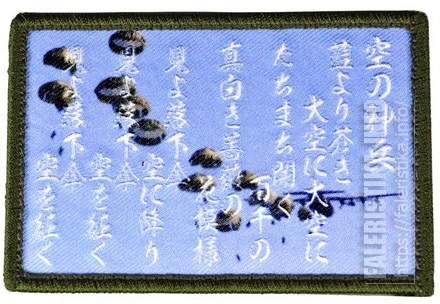 空の神兵
藍より蒼き
大空に大空に
たちまち開く
百千の
真白き薔薇の
花模様
見よ落下傘
空に降り
見よ落下傘
空を征く
見よ落下傘
空を征く
FALERISTIKA.INFO
https://faleristika.info/